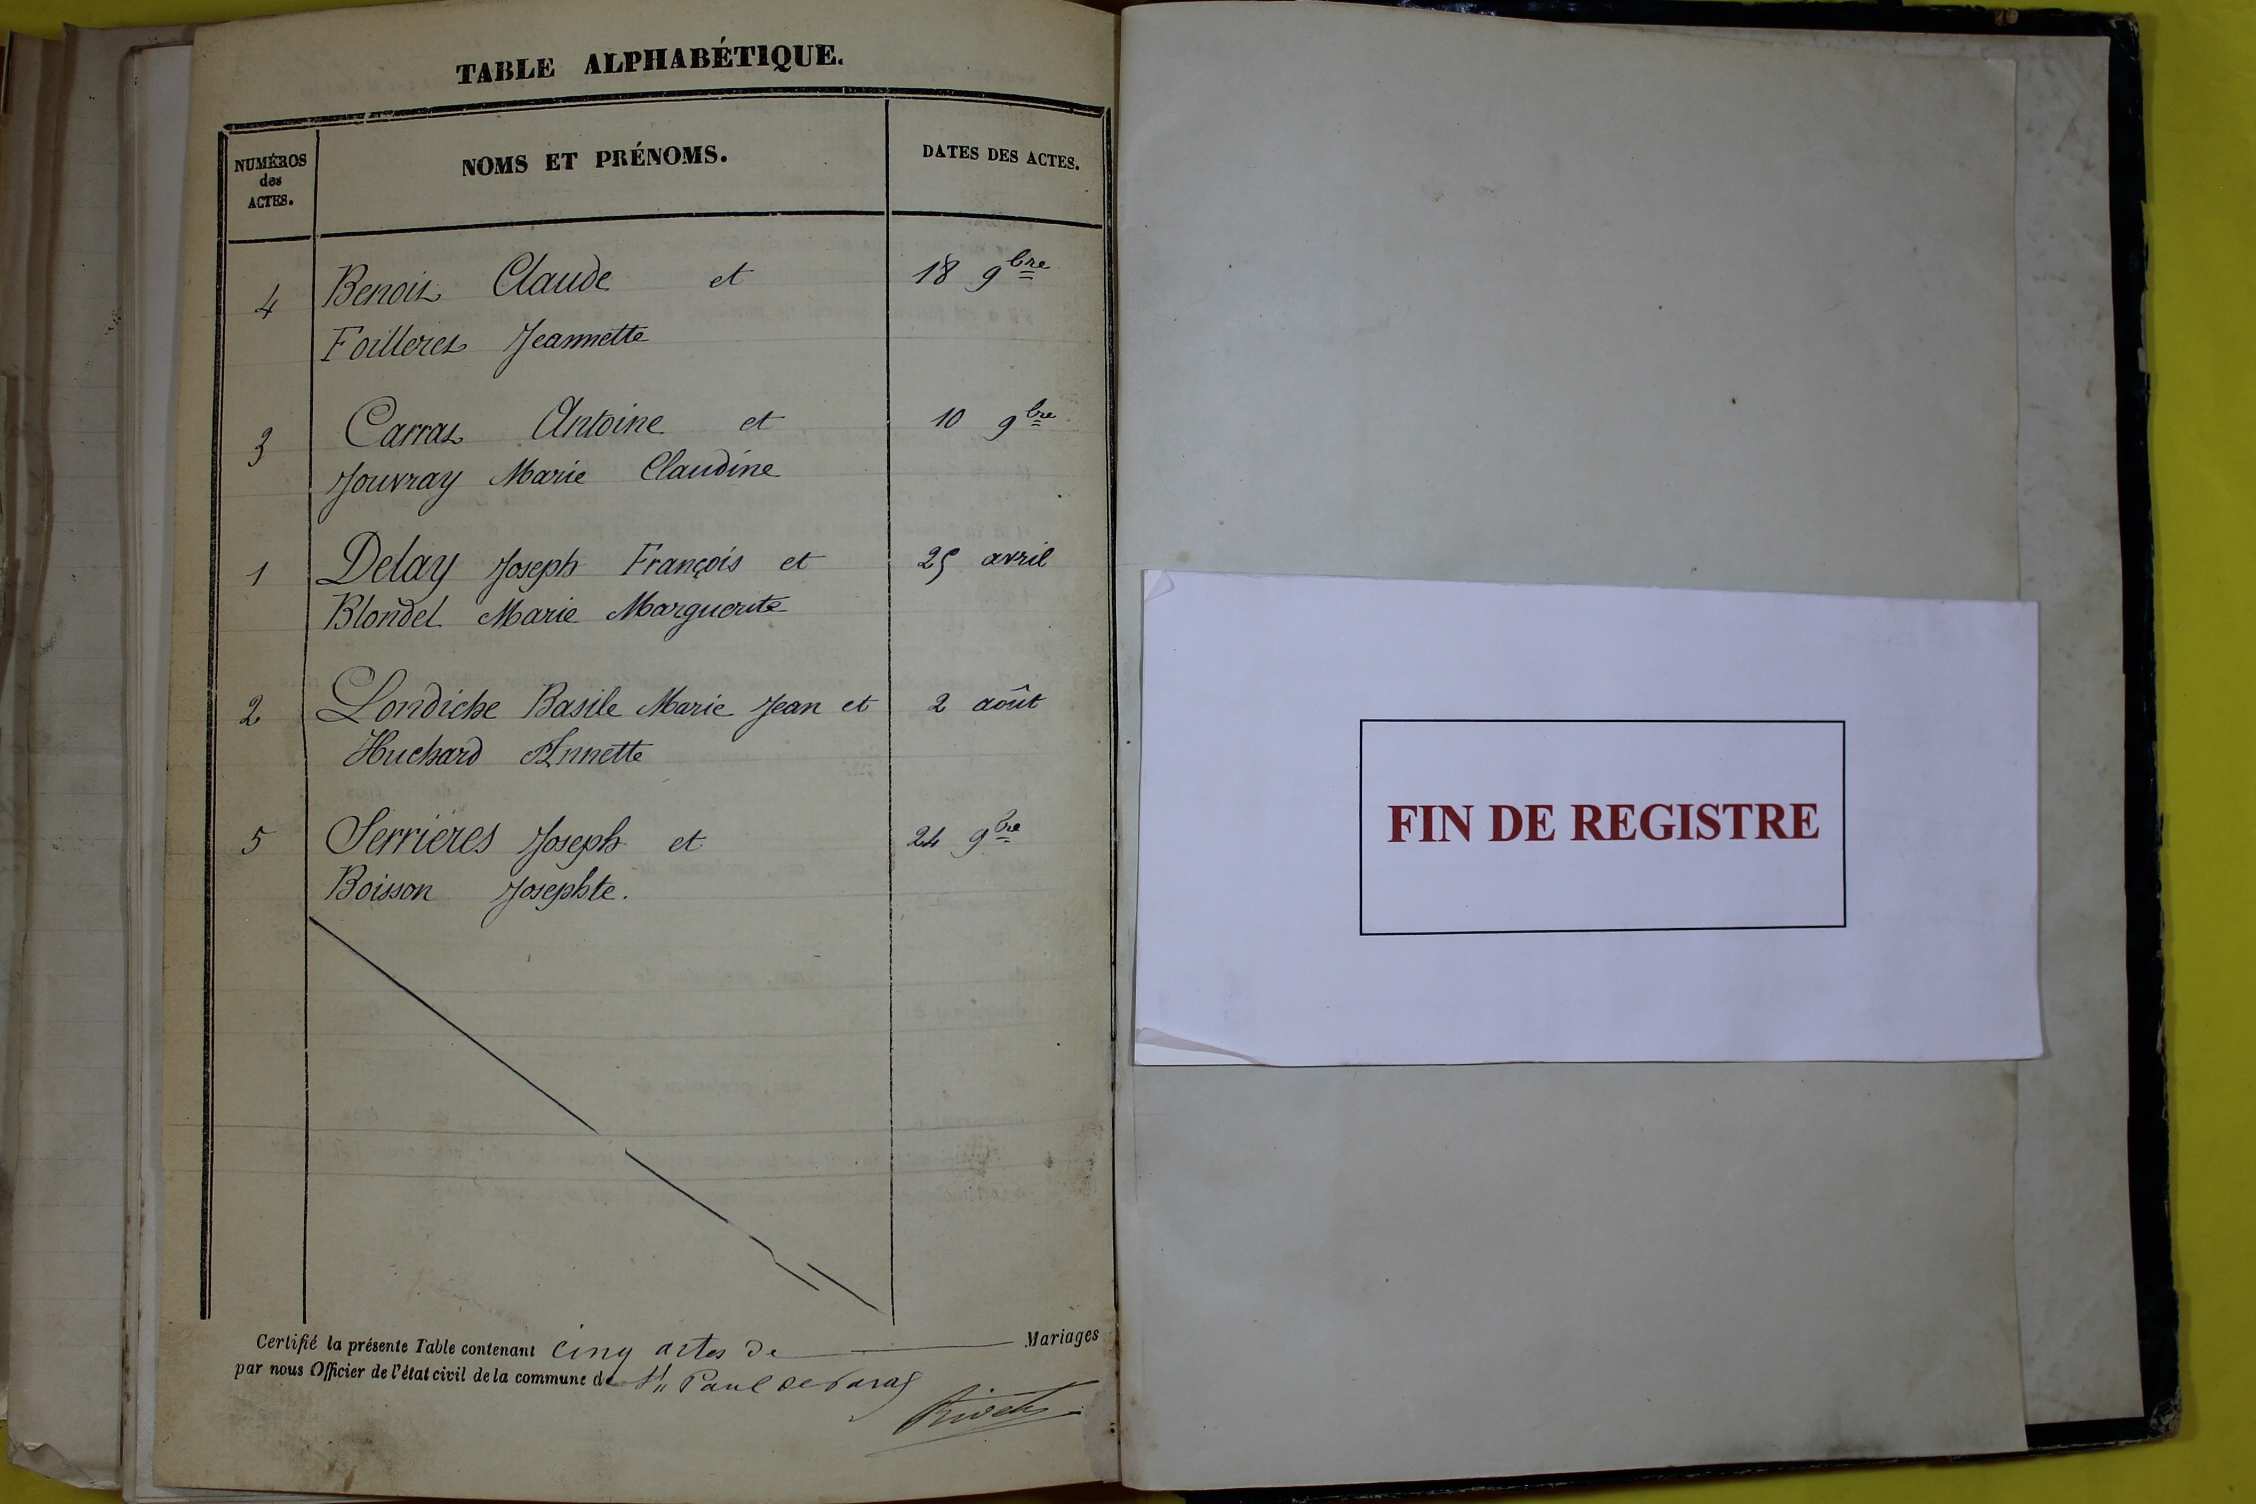 TABLE ALPHABÉTIQUE.
NUMÉROS des ACTES. NOMS ET PRÉNOMS. DATES DES ACTES.
4 Benois Claude et 18 9bre
Foilleres Jeannette
3 Carras Antoine et 10 9bre
Jouvray Marie Claudine
1 Delay Joseph François et 25 avril
Blondel Marie Marguerite
2 Londiche Basile Marie Jean et 2 août
Huchard Annette
5 Serrières Joseph et 24 9bre
Boisson Josephte.
Certifié la présente Table contenant cinq actes de Mariages
par nous Officier de l'état civil de la commune de St Paul de Varas
FIN DE REGISTRE